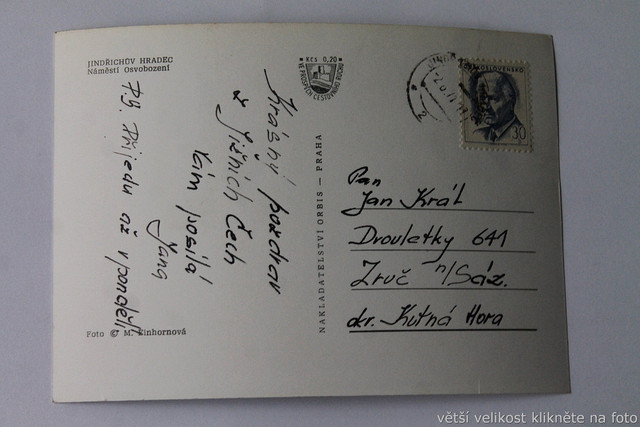 JINDŘICHŮV HRADEC
Náměstí Osvobození
Kčs 0,20
VE PROSPĚCH CESTOVNÍHO RUCHU
ČESKOSLOVENSKO
30
Krásný pozdrav
z Jižních Čech
Vám posílá
Jana
P.S. Přijedu až v pondělí
NAKLADATELSTVÍ ORBIS — PRAHA
Pan
Jan Král
Drouletky 641
Zruč n/Sáz.
okr. Kutná Hora
Foto © M. Einhornová
větší velikost klikněte na foto